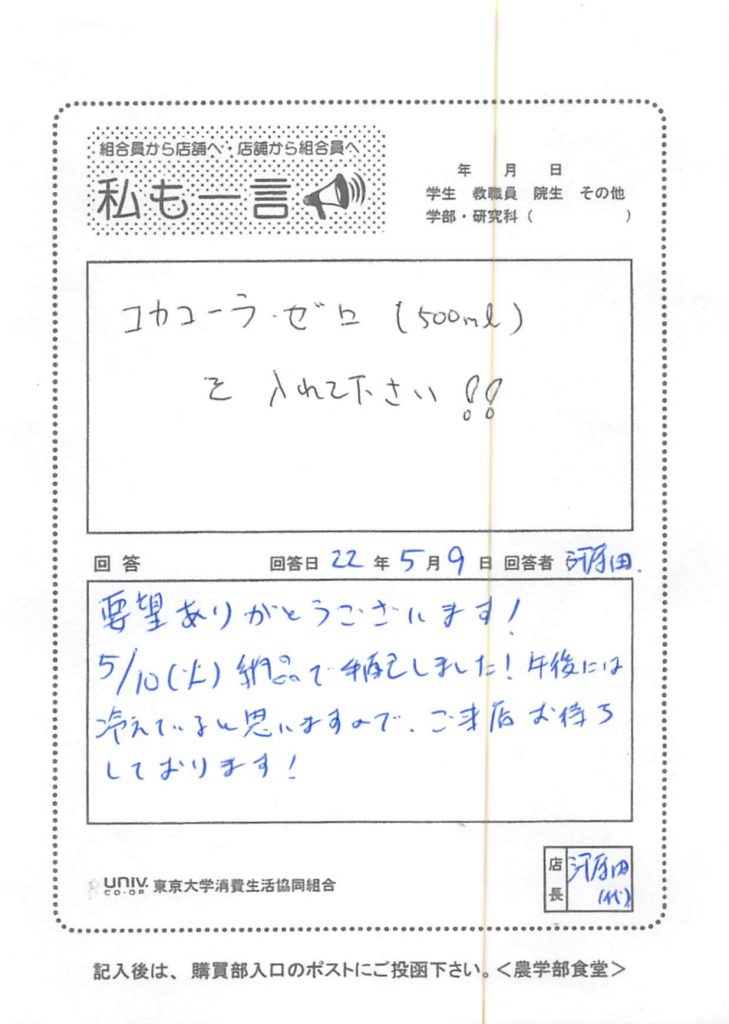 組合員から店舗へ・店舗から組合員へ
私も一言
年 月 日
学生 教職員 院生 その他
学部・研究科（ ）
コカコーラ・ゼロ (500ml)
を 入れて下さい!!
回答 回答日 22 年 5 月 9 日 回答者 河原田.
要望ありがとうございます!
5/10(火) 納品で手配しました! 午後には
冷えていると思いますので、ご来店お待ち
しております!
UNIV. CO-OP 東京大学消費生活協同組合
店長 河原田 (代)
記入後は、購買部入口のポストにご投函下さい。＜農学部食堂＞